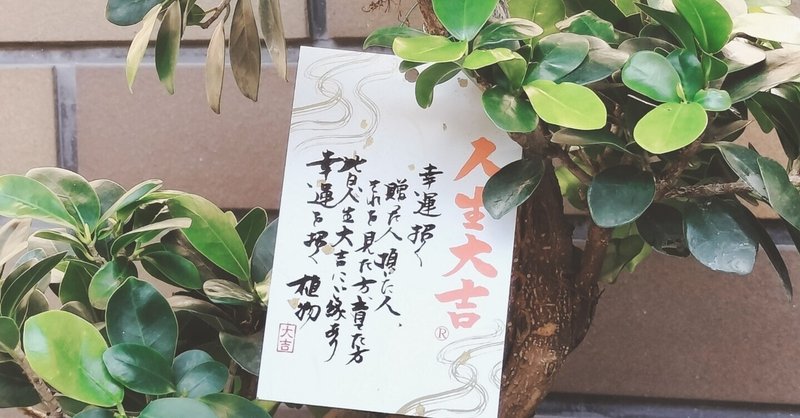 人生大吉
®
幸運招く
贈た人 頂いた人、
それを見た方、育た方
皆人生大吉にご縁あり
幸運を招く 植物
大吉